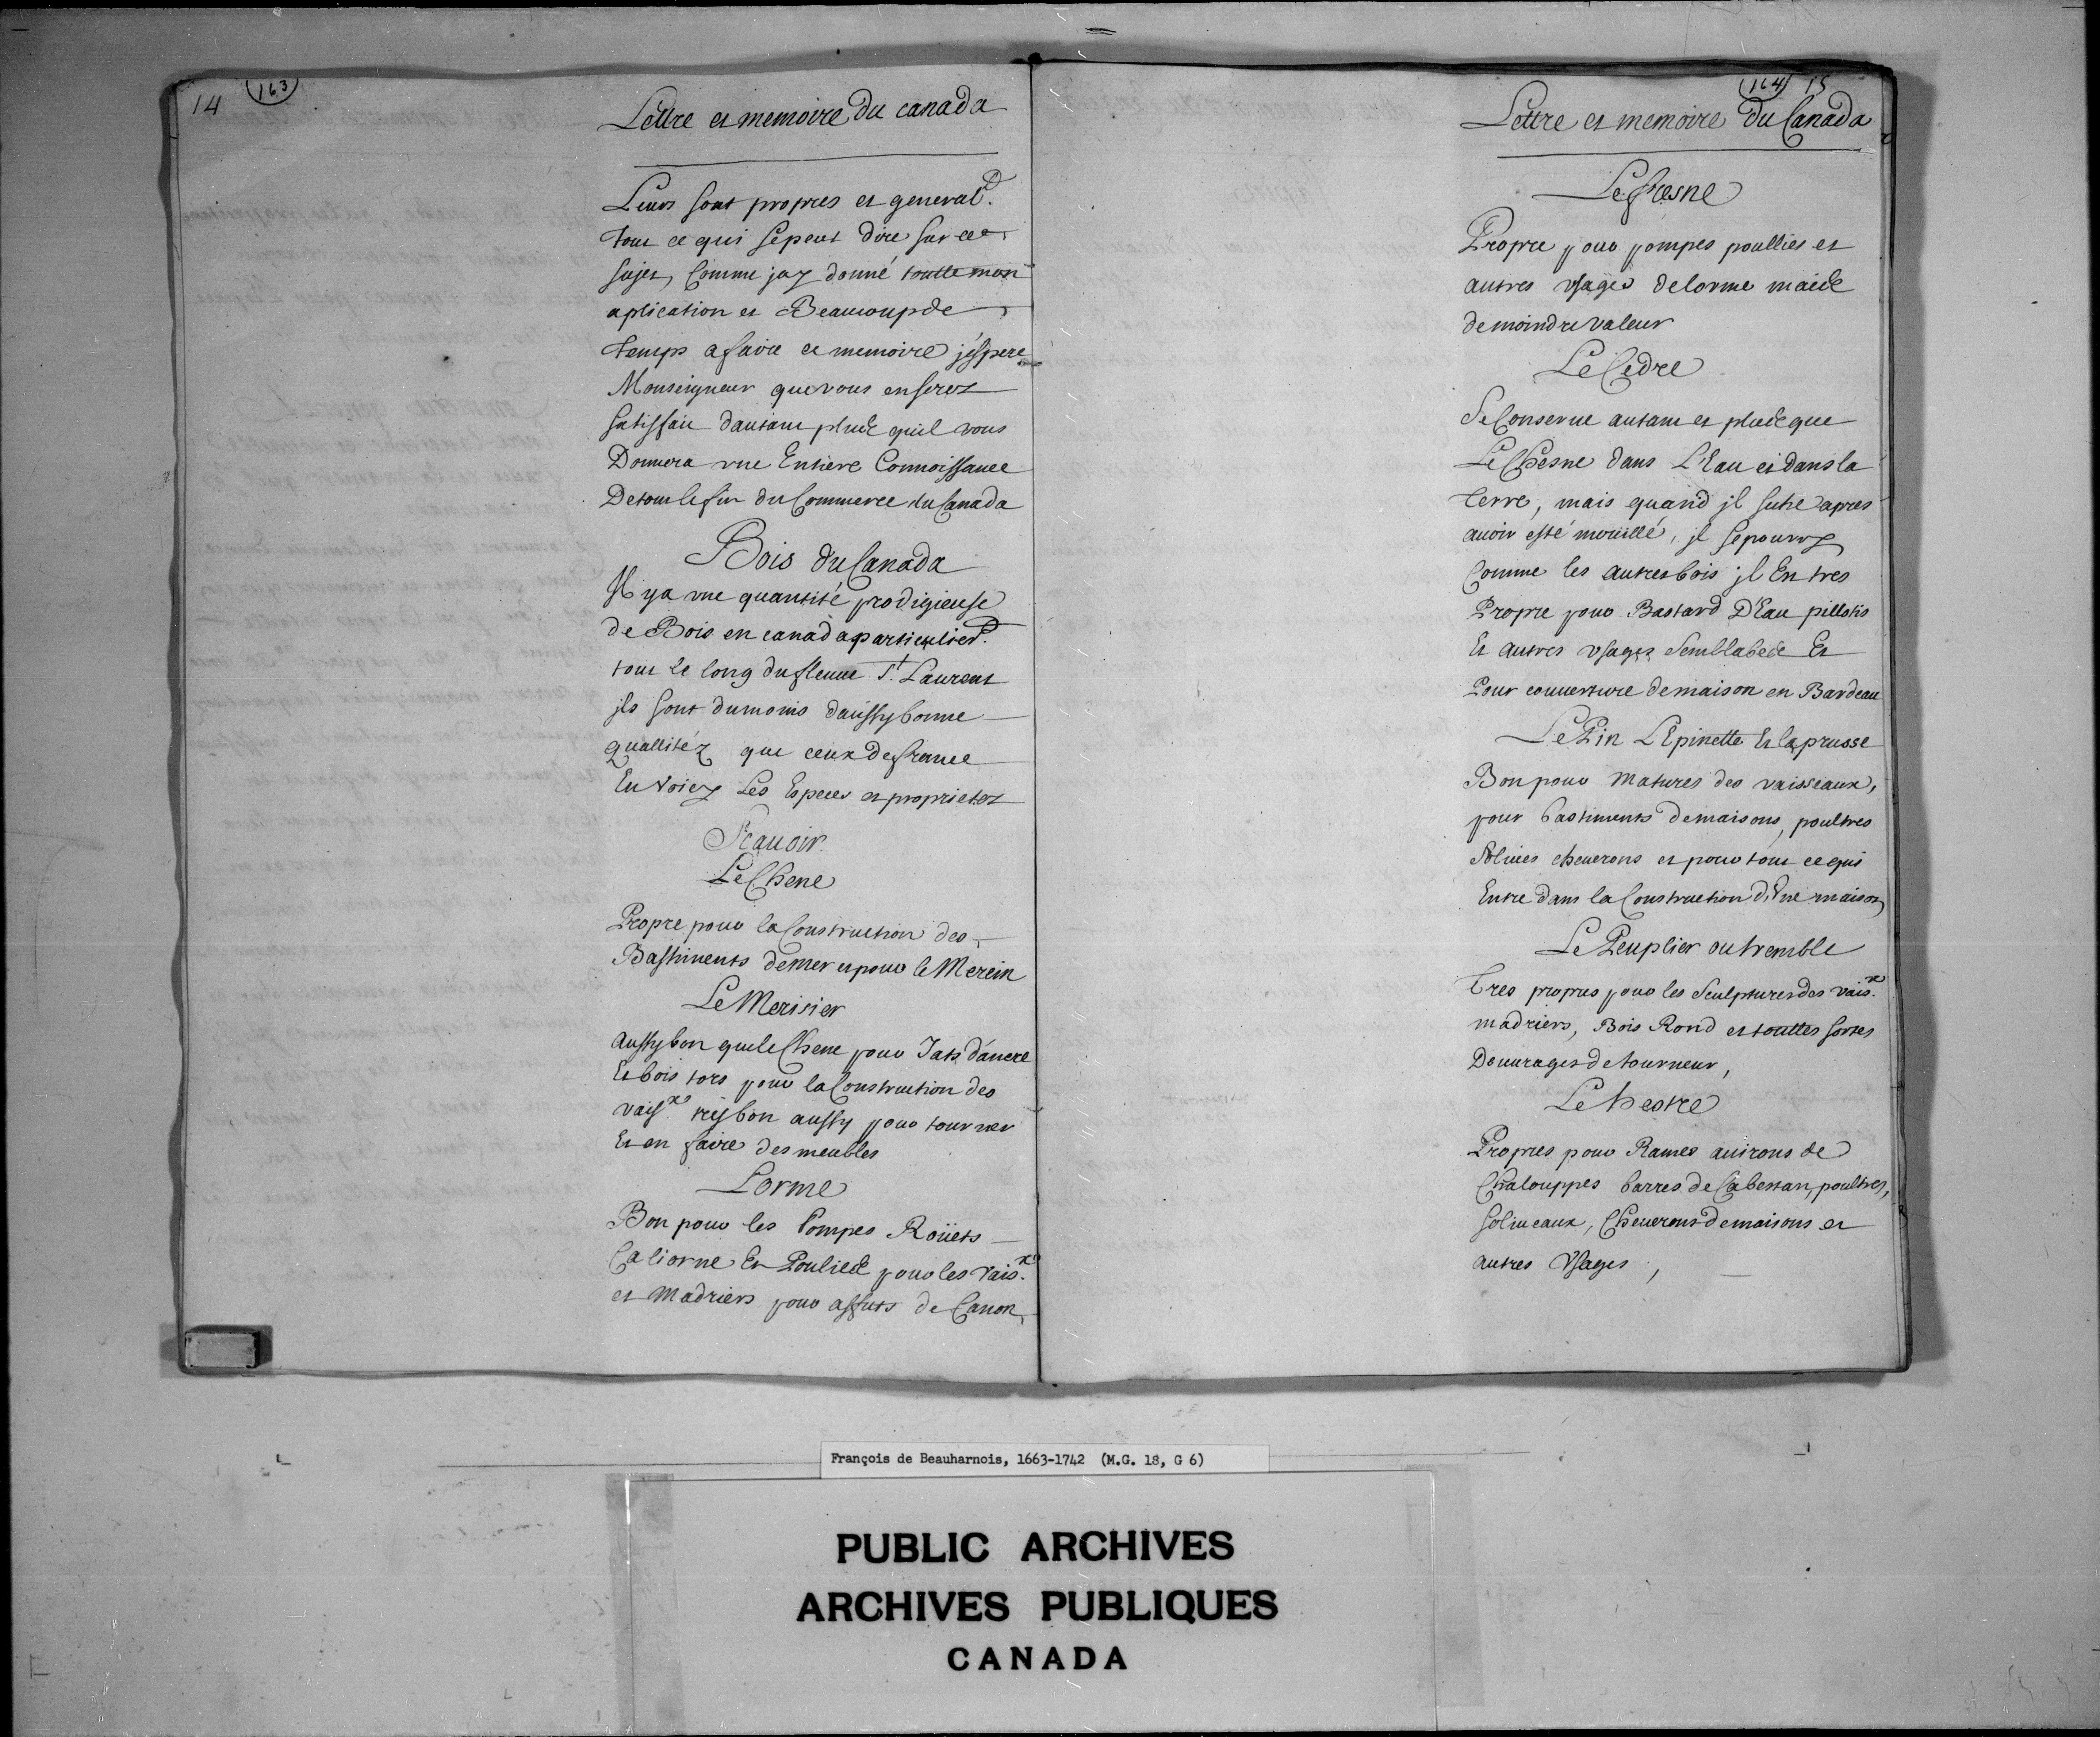 14
163
Lettre et memoire du canada
Leurs sont propres et general.t
tout ce qui se peut dire sur ce
sujet, Comme jay donné toutte mon
aplication et Beaucoup de
temps a faire ce memoire j'espere
Monseigneur que vous en serez
satisfait d'autant plus qu'il vous
Donnera une Entiere Connoissance
De tout le fin du Commerce du Canada
Bois du Canada
Il y a une quantité prodigieuse
de Bois en canada particulier.t
tout le long du fleuve S.t Laurent
jls sont du moins d'aussy bonne
quallitéz que ceux de france
En voicy Les Especes et proprietez
Scauoir
Le Chene
Propre pour la Construction des
Bastiments de mer et pour le Merein
Le Merisier
aussy bon que le Chene pour Jats d'ancre
Et bois tors pour la Construction des
vaiss.x tres bon aussy pour tourner
Et en faire des meubles
L'orme
Bon pour les Pompes Roüets
Caliorne Et Poulies pour les vais.x
et Madriers pour affuts de Canon,
164 15
Lettre et memoire du Canada
Le fresne
Propre pour pompes poullies et
autres usages de lorme mais
de moindre valeur
Le Cedre
Se Conserve autant et plus que
Le Chesne dans L'Eau et dans la
terre, mais quand jl seche apres
auoir esté moüillé, jl se pourry
Comme les autres bois jl Est tres
Propre pour Bastard D'Eau pillotis
Et autres usages Semblables Et
Pour couverture de maison en Bardeau
Le Pin L'Epinette Et la prusse
Bon pour matures des vaisseaux,
pour bastiments de maisons, poultres
soliues cheuerons et pour tout ce qui
Entre dans la Construction d'Une maison
Le Peuplier ou tremble
Tres propres pour les Sculptures des vais.x
madriers, Bois Rond et touttes sortes
D'ouurages de tourneur,
Le hestre
Propres pour Rames auirons de
Chalouppes barres de Cabestan, poultres,
soliueaux, Cheuerons de maisons et
autres Usages,
François de Beauharnois, 1663-1742 (M.G. 18, G 6)
PUBLIC ARCHIVES
ARCHIVES PUBLIQUES
CANADA